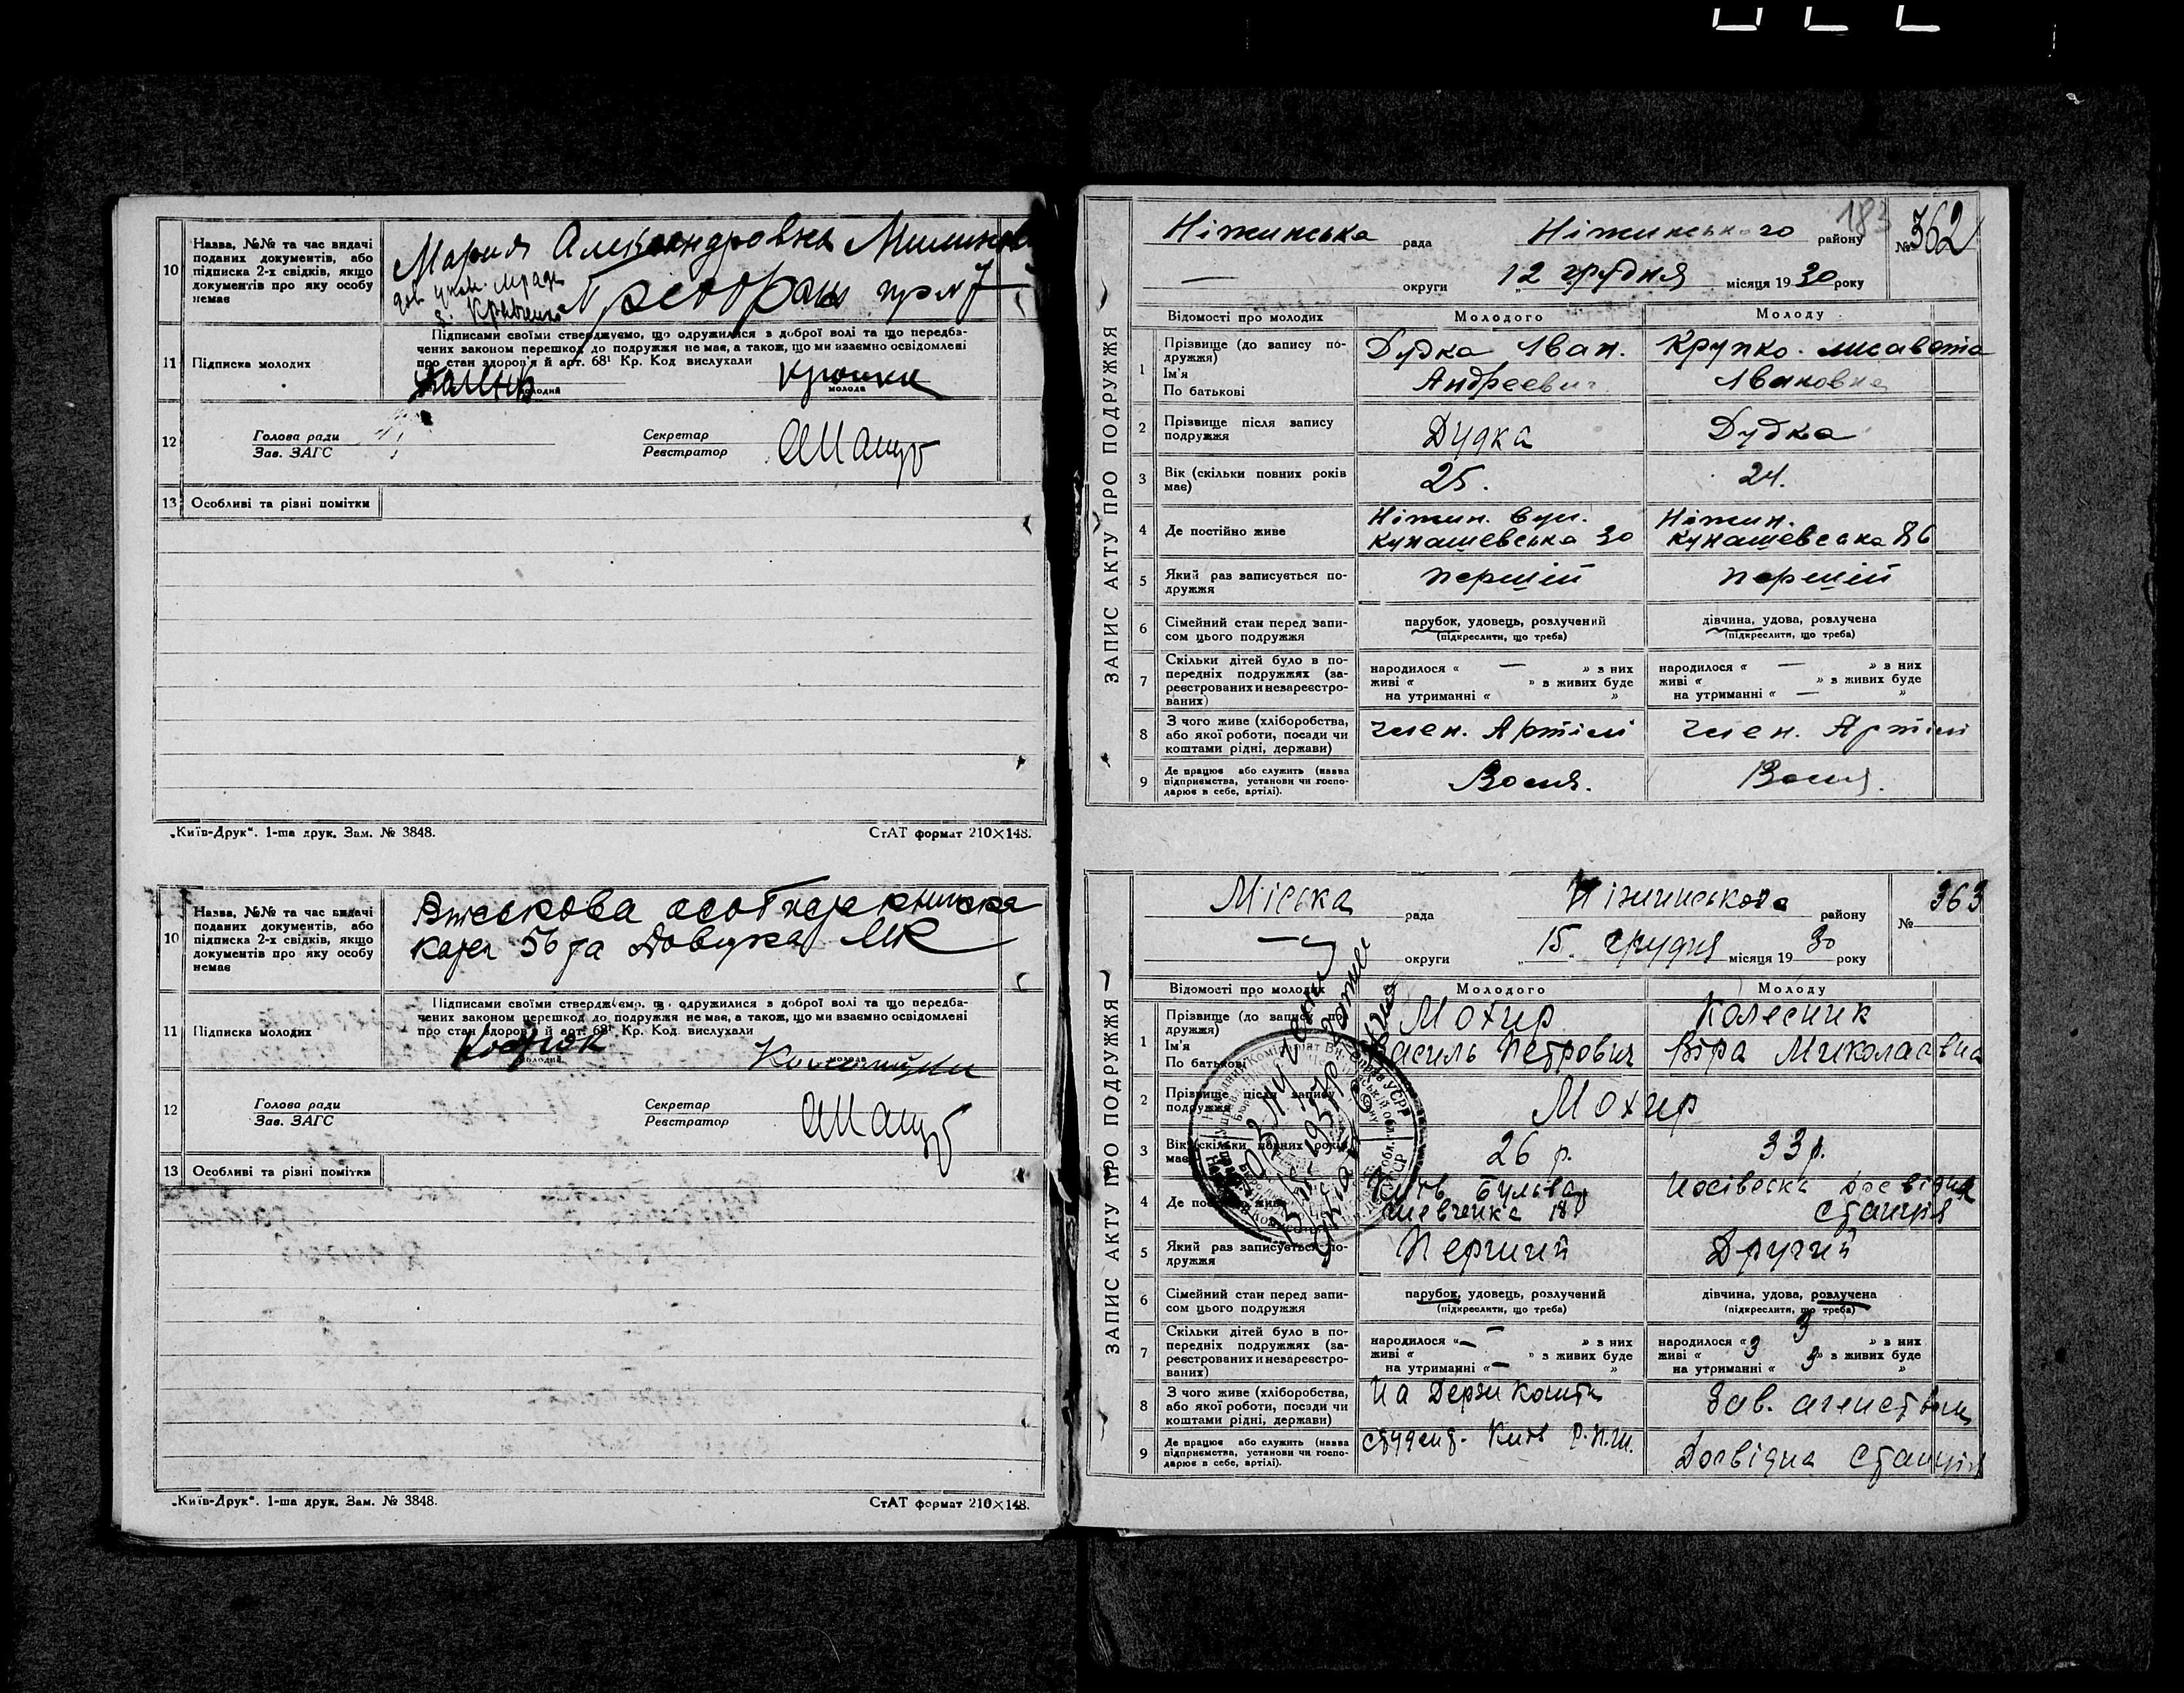 10
Назва, №№ та час видачі
поданих документів, або
підписка 2-х свідків, якщо
документів про яку особу
немає
Мария Александровна
11
Підписка молодих
Підписами своїми стверджуємо, що одружилися з доброї волі та що передба-
чених законом перешкод до подружжя не має, а також, що ми взаємно освідомлені
про стан здоров'я й арт. 68¹ Кр. Код вислухали
молодий
молода
12
Голова ради
Зав. ЗАГС
Секретар
Реєстратор
13
Особливі та різні помітки
„Київ-Друк“. 1-ша друк. Зам. № 3848.
СтАТ формат 210×148.
10
Назва, №№ та час видачі
поданих документів, або
підписка 2-х свідків, якщо
документів про яку особу
немає
11
Підписка молодих
Підписами своїми стверджуємо, що одружилися з доброї волі та що передба-
чених законом перешкод до подружжя не має, а також, що ми взаємно освідомлені
про стан здоров'я й арт. 68¹ Кр. Код вислухали
Костюк
молодий
молода
12
Голова ради
Зав. ЗАГС
Секретар
Реєстратор
13
Особливі та різні помітки
„Київ-Друк“. 1-ша друк. Зам. № 3848.
СтАТ формат 210×148.
183
ЗАПИС АКТУ ПРО ПОДРУЖЖЯ
Ніжинська рада Ніжинського району № 362
— округи „12 грудня місяця 1930 року
Відомості про молодих Молодого Молоду
1 Прізвище (до запису по-
дружжя)
Ім'я
По батькові
Дудка Іван.
Андреевич
Крупко. лисавета
Івановна
2 Прізвище після запису
подружжя
Дудка Дудка
3 Вік (скільки повних років
має)
25. 24.
4 Де постійно живе
Ніжин. вул.
Кунашевська 30
Ніжин.
Кунашевська 86
5 Який раз записується по-
дружжя
першій першій
6 Сімейний стан перед запи-
сом цього подружжя
парубок, удовець, розлучений
(підкреслити, що треба)
дівчина, удова, розлучена
(підкреслити, що треба)
7 Скільки дітей було в по-
передніх подружжях (за-
реєстрованих и незареєстро-
ваних)
народилося « — » з них
живі « » з живих буде
на утриманні « »
народилося « — » з них
живі « » з живих буде
на утриманні « — »
8 З чого живе (хліборобства,
або якої роботи, посади чи
коштами рідні, держави)
член. Артілі член. Артілі
9 Де працює або служить (назва
підприємства, установи чи госпо-
дарює в себе, артілі).
ЗАПИС АКТУ ПРО ПОДРУЖЖЯ
Міська рада Ніжинського району № 363
— округи „15. грудня місяця 1930 року
Відомості про молодих Молодого Молоду
1 Прізвище (до запису по-
дружжя)
Ім'я
По батькові
Мохир
Василь Петрович
Колесник
Віра Миколаевна
2 Прізвище після запису
подружжя
Мохир
3 Вік (скільки повних років
має)
26 р. 33 р.
4 Де постійно живе
Київ Бульвар
Шевченка 18
Носівська досвідна
станція
5 Який раз записується по-
дружжя
Перший Другий
6 Сімейний стан перед запи-
сом цього подружжя
парубок, удовець, розлучений
(підкреслити, що треба)
дівчина, удова, розлучена
(підкреслити, що треба)
7 Скільки дітей було в по-
передніх подружжях (за-
реєстрованих и незареєстро-
ваних)
народилося « — » з них
живі « » з живих буде
на утриманні « — »
народилося « 3 » з них
живі « 3 » з живих буде
на утриманні « 3 »
8 З чого живе (хліборобства,
або якої роботи, посади чи
коштами рідні, держави)
На Держ Кошти
Зав.
9 Де працює або служить (назва
підприємства, установи чи госпо-
дарює в себе, артілі).
студент. Київ
Досвідна станція